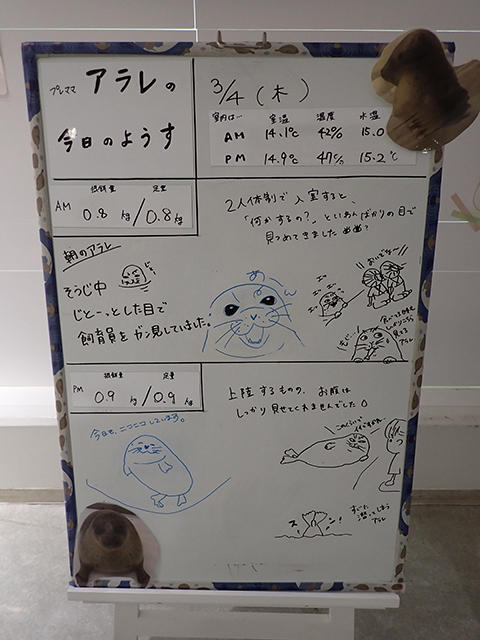 プレママ アラレの
今日のようす
3/4 (木)
室温 湿度 水温
AM 14.1℃ 42% 15.0
PM 14.9℃ 47% 15.2℃
給餌量 定量
AM 0.8 kg/0.8kg
2人体制で入室すると、
「何かするの?」といわんばかりの目で
見つめてきました
朝のアラレ
そうじ中
じとーっとした目で
飼育員をガン見していました。
じー
おいでな〜
給餌量 定量
PM 0.9 kg/0.9kg
上陸するものの、お腹は
しっかり見せてくれませんでした
今日も、ニコニコしています。
スィーン!